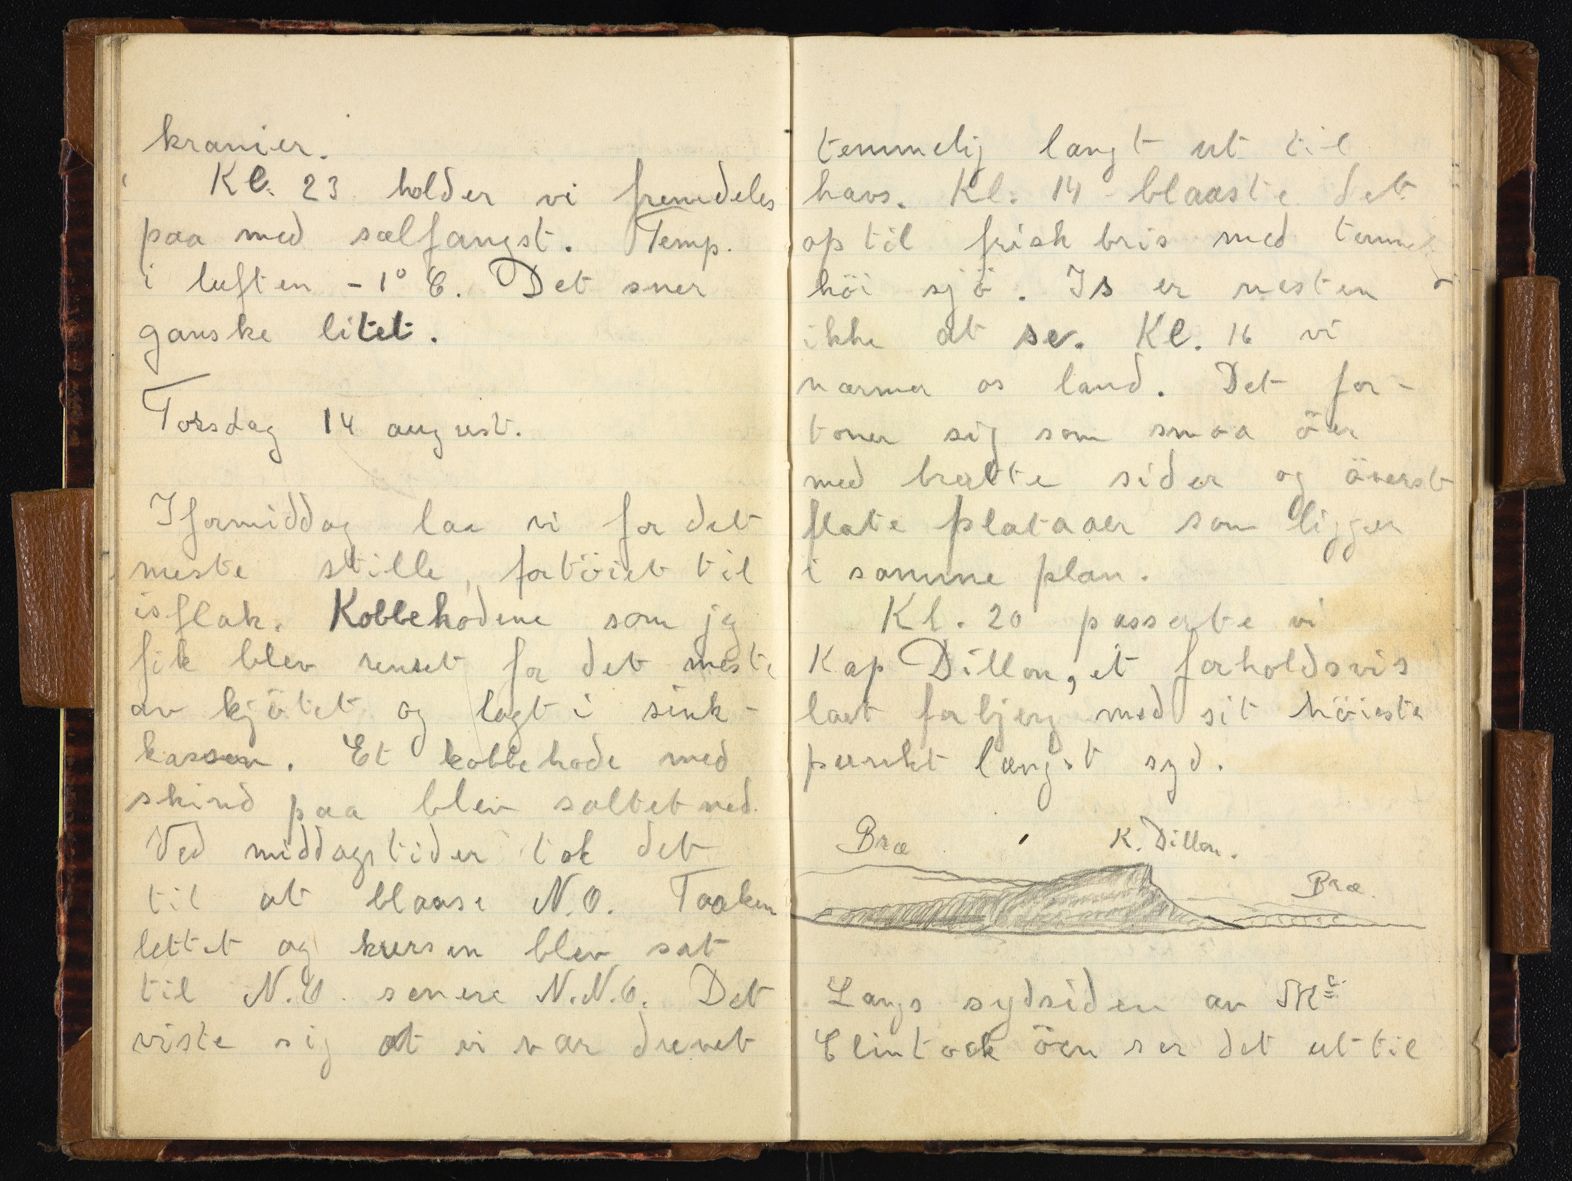 kranier.
Kl. 23 holder vi fremdeles
paa med sælfangst. Temp.
i luften -1° C. Det sner
ganske litet.
Torsdag 14 august.
I formiddag laa vi for det
meste stille, fortöiet til
isflak. Kobbehodene som jeg
fik blev renset for det meste
av kjötet og lagt i sink-
kassen. Et kobbehode med
skind paa blev saltet ned.
Ved middagstider tok det
til at blaase N.O. Taaken
lettet og kursen blev sat
til N.O. senere N.N.O. Det
viste sig at vi var drevet
temmelig langt ut til
havs. Kl. 14 blaaste det
op til frisk bris med temmelig
höi sjö. Is er næsten
ikke at se. Kl. 16 vi
nærmer os land. Det for-
toner sig som smaa öer
med bratte sider og överst
flate plataaer som ligger
i samme plan.
Kl. 20 passerte vi
Kap Dillon, et forholdsvis
lavt forbjerg med sit höieste
punkt længst syd.
Bræ
K. Dillon.
Bræ
Langs sydsiden av Mc
Clintock öen ser det ut til